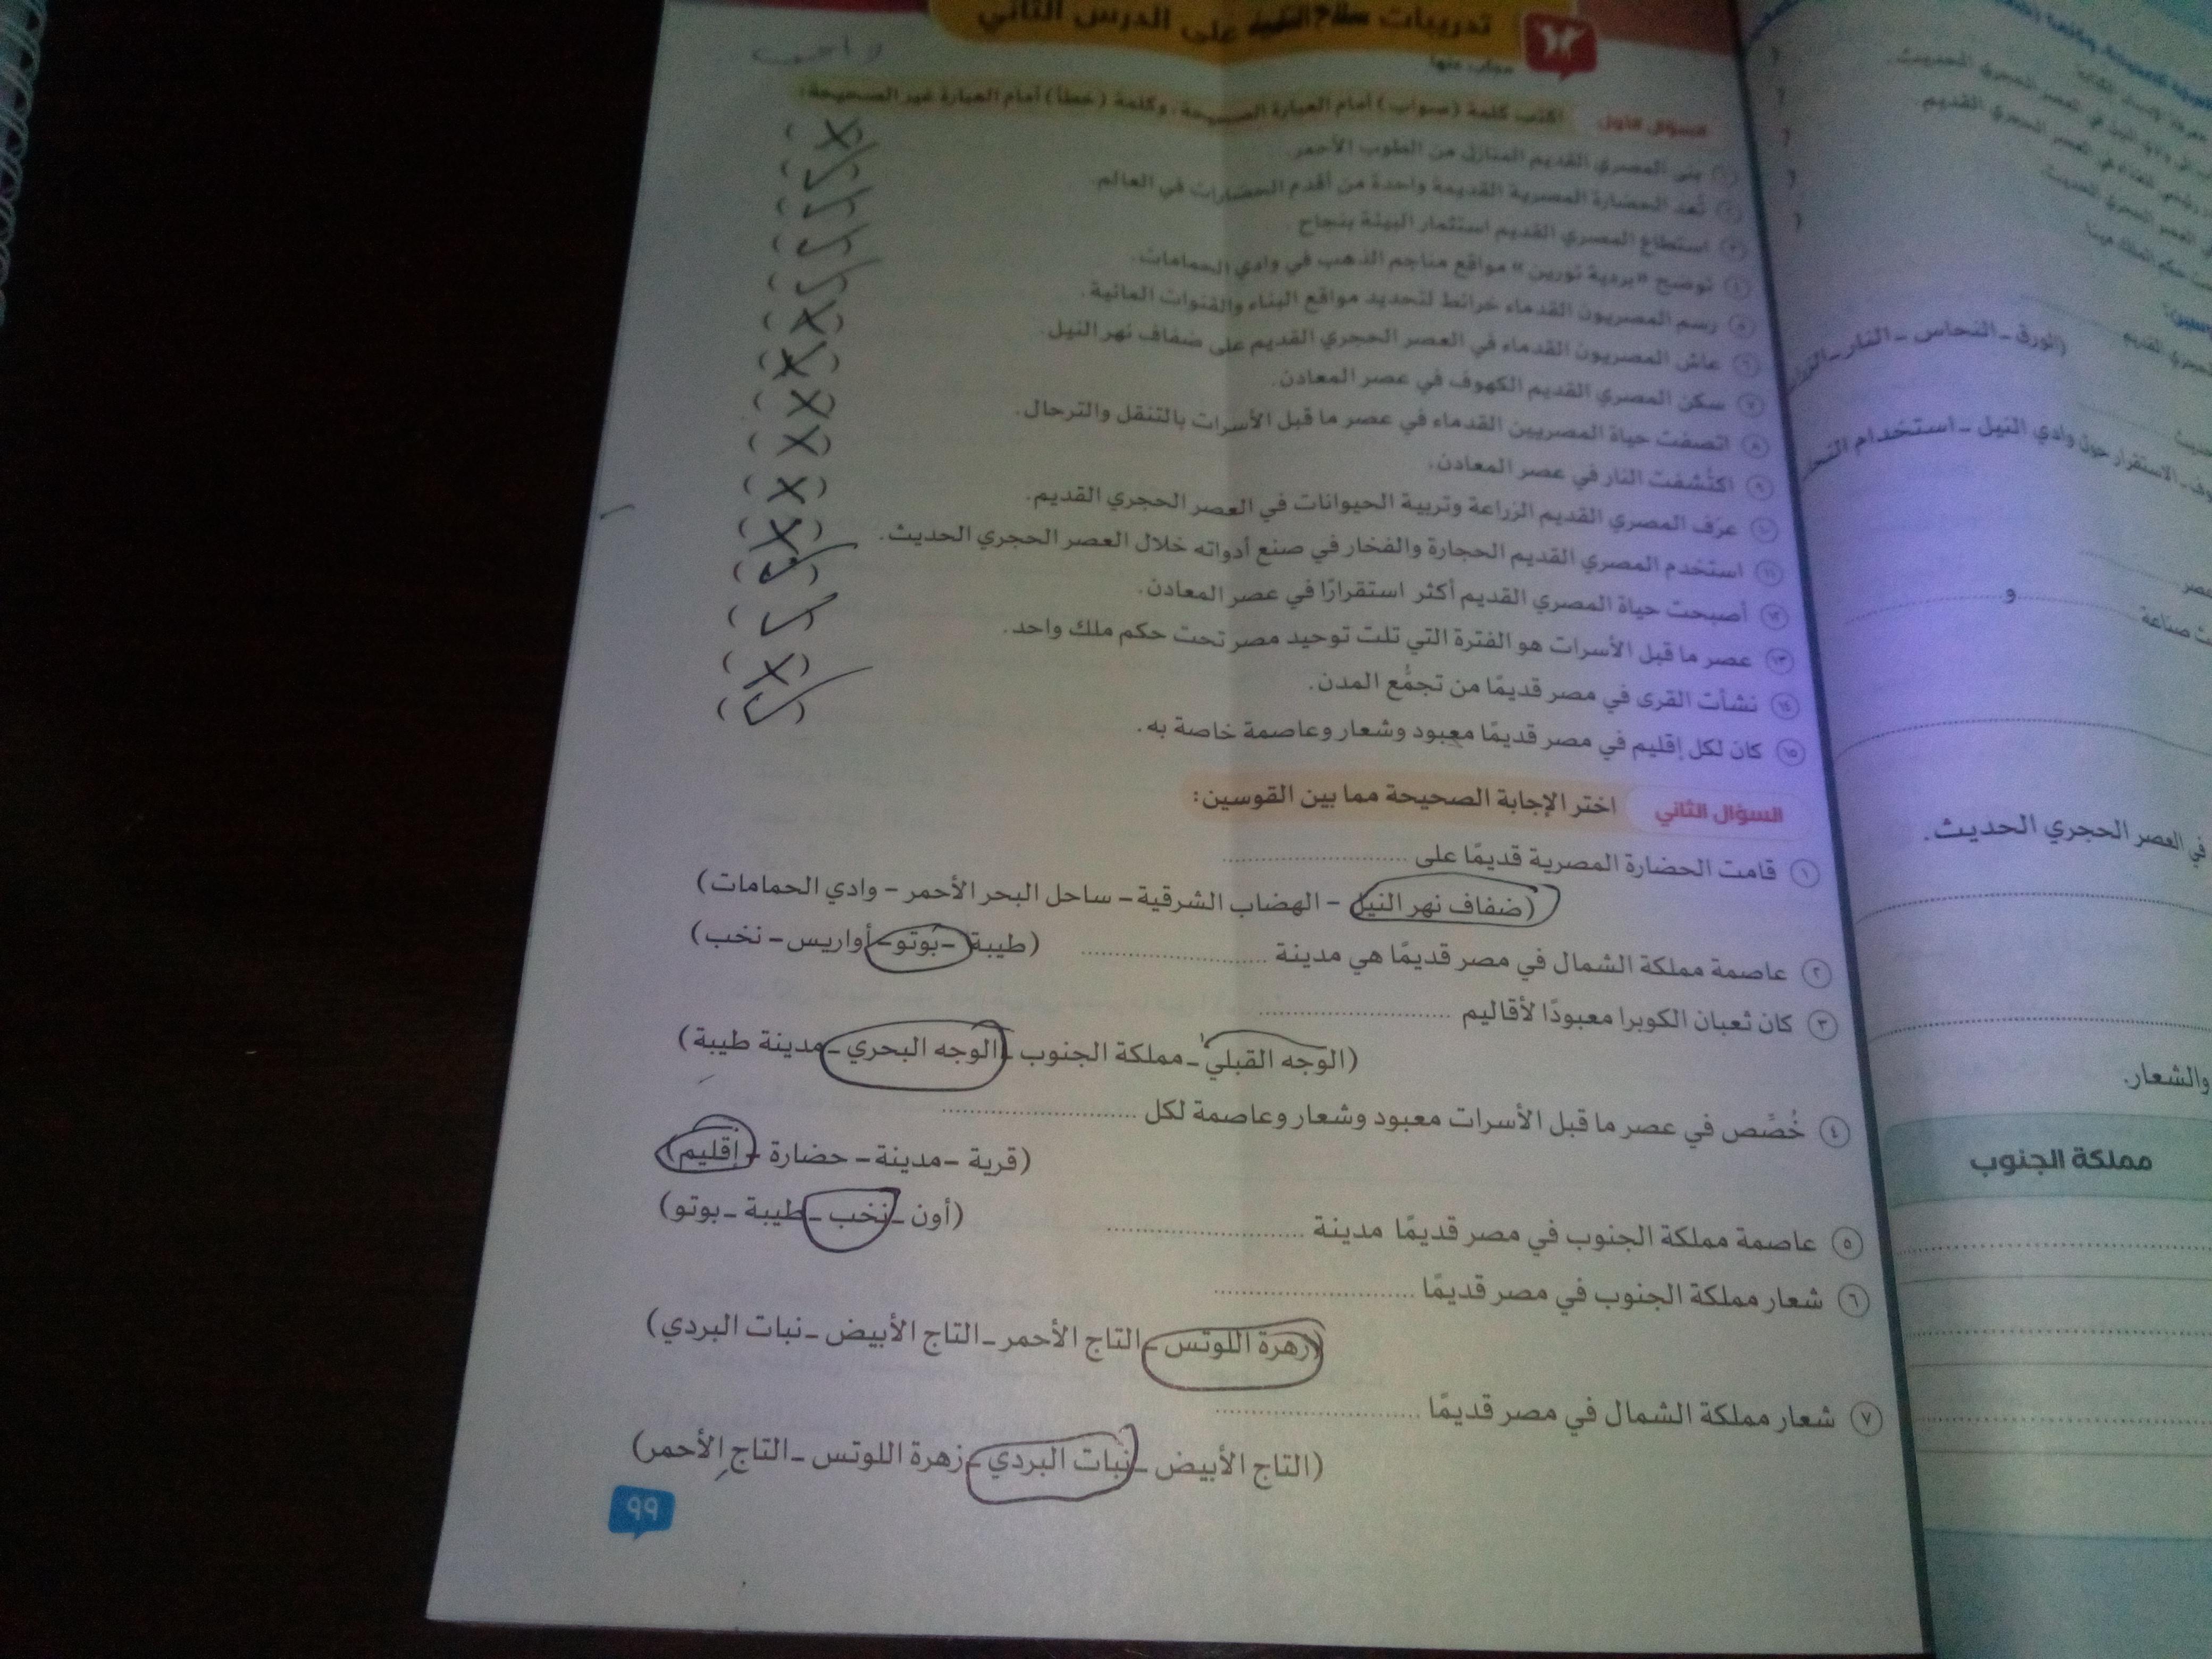 تدريبات سلاح التلميذ على الدرس الثاني
١٢
مجاب عنها
واجب
السؤال الأول اكتب كلمة (صواب) أمام العبارة الصحيحة، وكلمة (خطأ) أمام العبارة غير الصحيحة:
١ بنى المصري القديم المنازل من الطوب الأحمر. (✗)
٢ تُعد الحضارة المصرية القديمة واحدة من أقدم الحضارات في العالم. (✓)
٣ استطاع المصري القديم استثمار البيئة بنجاح. (✓)
٤ توضح «بردية تورين» مواقع مناجم الذهب في وادي الحمامات. (✓)
٥ رسم المصريون القدماء خرائط لتحديد مواقع البناء والقنوات المائية. (✓)
٦ عاش المصريون القدماء في العصر الحجري القديم على ضفاف نهر النيل. (✗)
٧ سكن المصري القديم الكهوف في عصر المعادن. (✗)
٨ اتصفت حياة المصريين القدماء في عصر ما قبل الأسرات بالتنقل والترحال. (✗)
٩ اكتُشفت النار في عصر المعادن. (✗)
١٠ عرف المصري القديم الزراعة وتربية الحيوانات في العصر الحجري القديم. (✗)
١١ استخدم المصري القديم الحجارة والفخار في صنع أدواته خلال العصر الحجري الحديث. (✗)
١٢ أصبحت حياة المصري القديم أكثر استقرارًا في عصر المعادن. (✓)
١٣ عصر ما قبل الأسرات هو الفترة التي تلت توحيد مصر تحت حكم ملك واحد. (✓)
١٤ نشأت القرى في مصر قديمًا من تجمُّع المدن. (✗)
١٥ كان لكل إقليم في مصر قديمًا معبود وشعار وعاصمة خاصة به. (✓)
السؤال الثاني اختر الإجابة الصحيحة مما بين القوسين:
١ قامت الحضارة المصرية قديمًا على ..........
(ضفاف نهر النيل – الهضاب الشرقية – ساحل البحر الأحمر – وادي الحمامات)
٢ عاصمة مملكة الشمال في مصر قديمًا هي مدينة .......... (طيبة – بوتو – أواريس – نخب)
٣ كان ثعبان الكوبرا معبودًا لأقاليم ..........
(الوجه القبلي – مملكة الجنوب – الوجه البحري – مدينة طيبة)
٤ خُصِّص في عصر ما قبل الأسرات معبود وشعار وعاصمة لكل ..........
(قرية – مدينة – حضارة – إقليم)
٥ عاصمة مملكة الجنوب في مصر قديمًا مدينة .......... (أون – نخب – طيبة – بوتو)
٦ شعار مملكة الجنوب في مصر قديمًا ..........
(زهرة اللوتس – التاج الأحمر – التاج الأبيض – نبات البردي)
٧ شعار مملكة الشمال في مصر قديمًا ..........
(التاج الأبيض – نبات البردي – زهرة اللوتس – التاج الأحمر)
٩٩
في العصر الحجري الحديث.
في العصر الحجري القديم.
(الورق – النحاس – النار –
الاستقرار حول وادي النيل – استخدام
و
صناعة
في العصر الحجري الحديث.
والشعار.
مملكة الجنوب